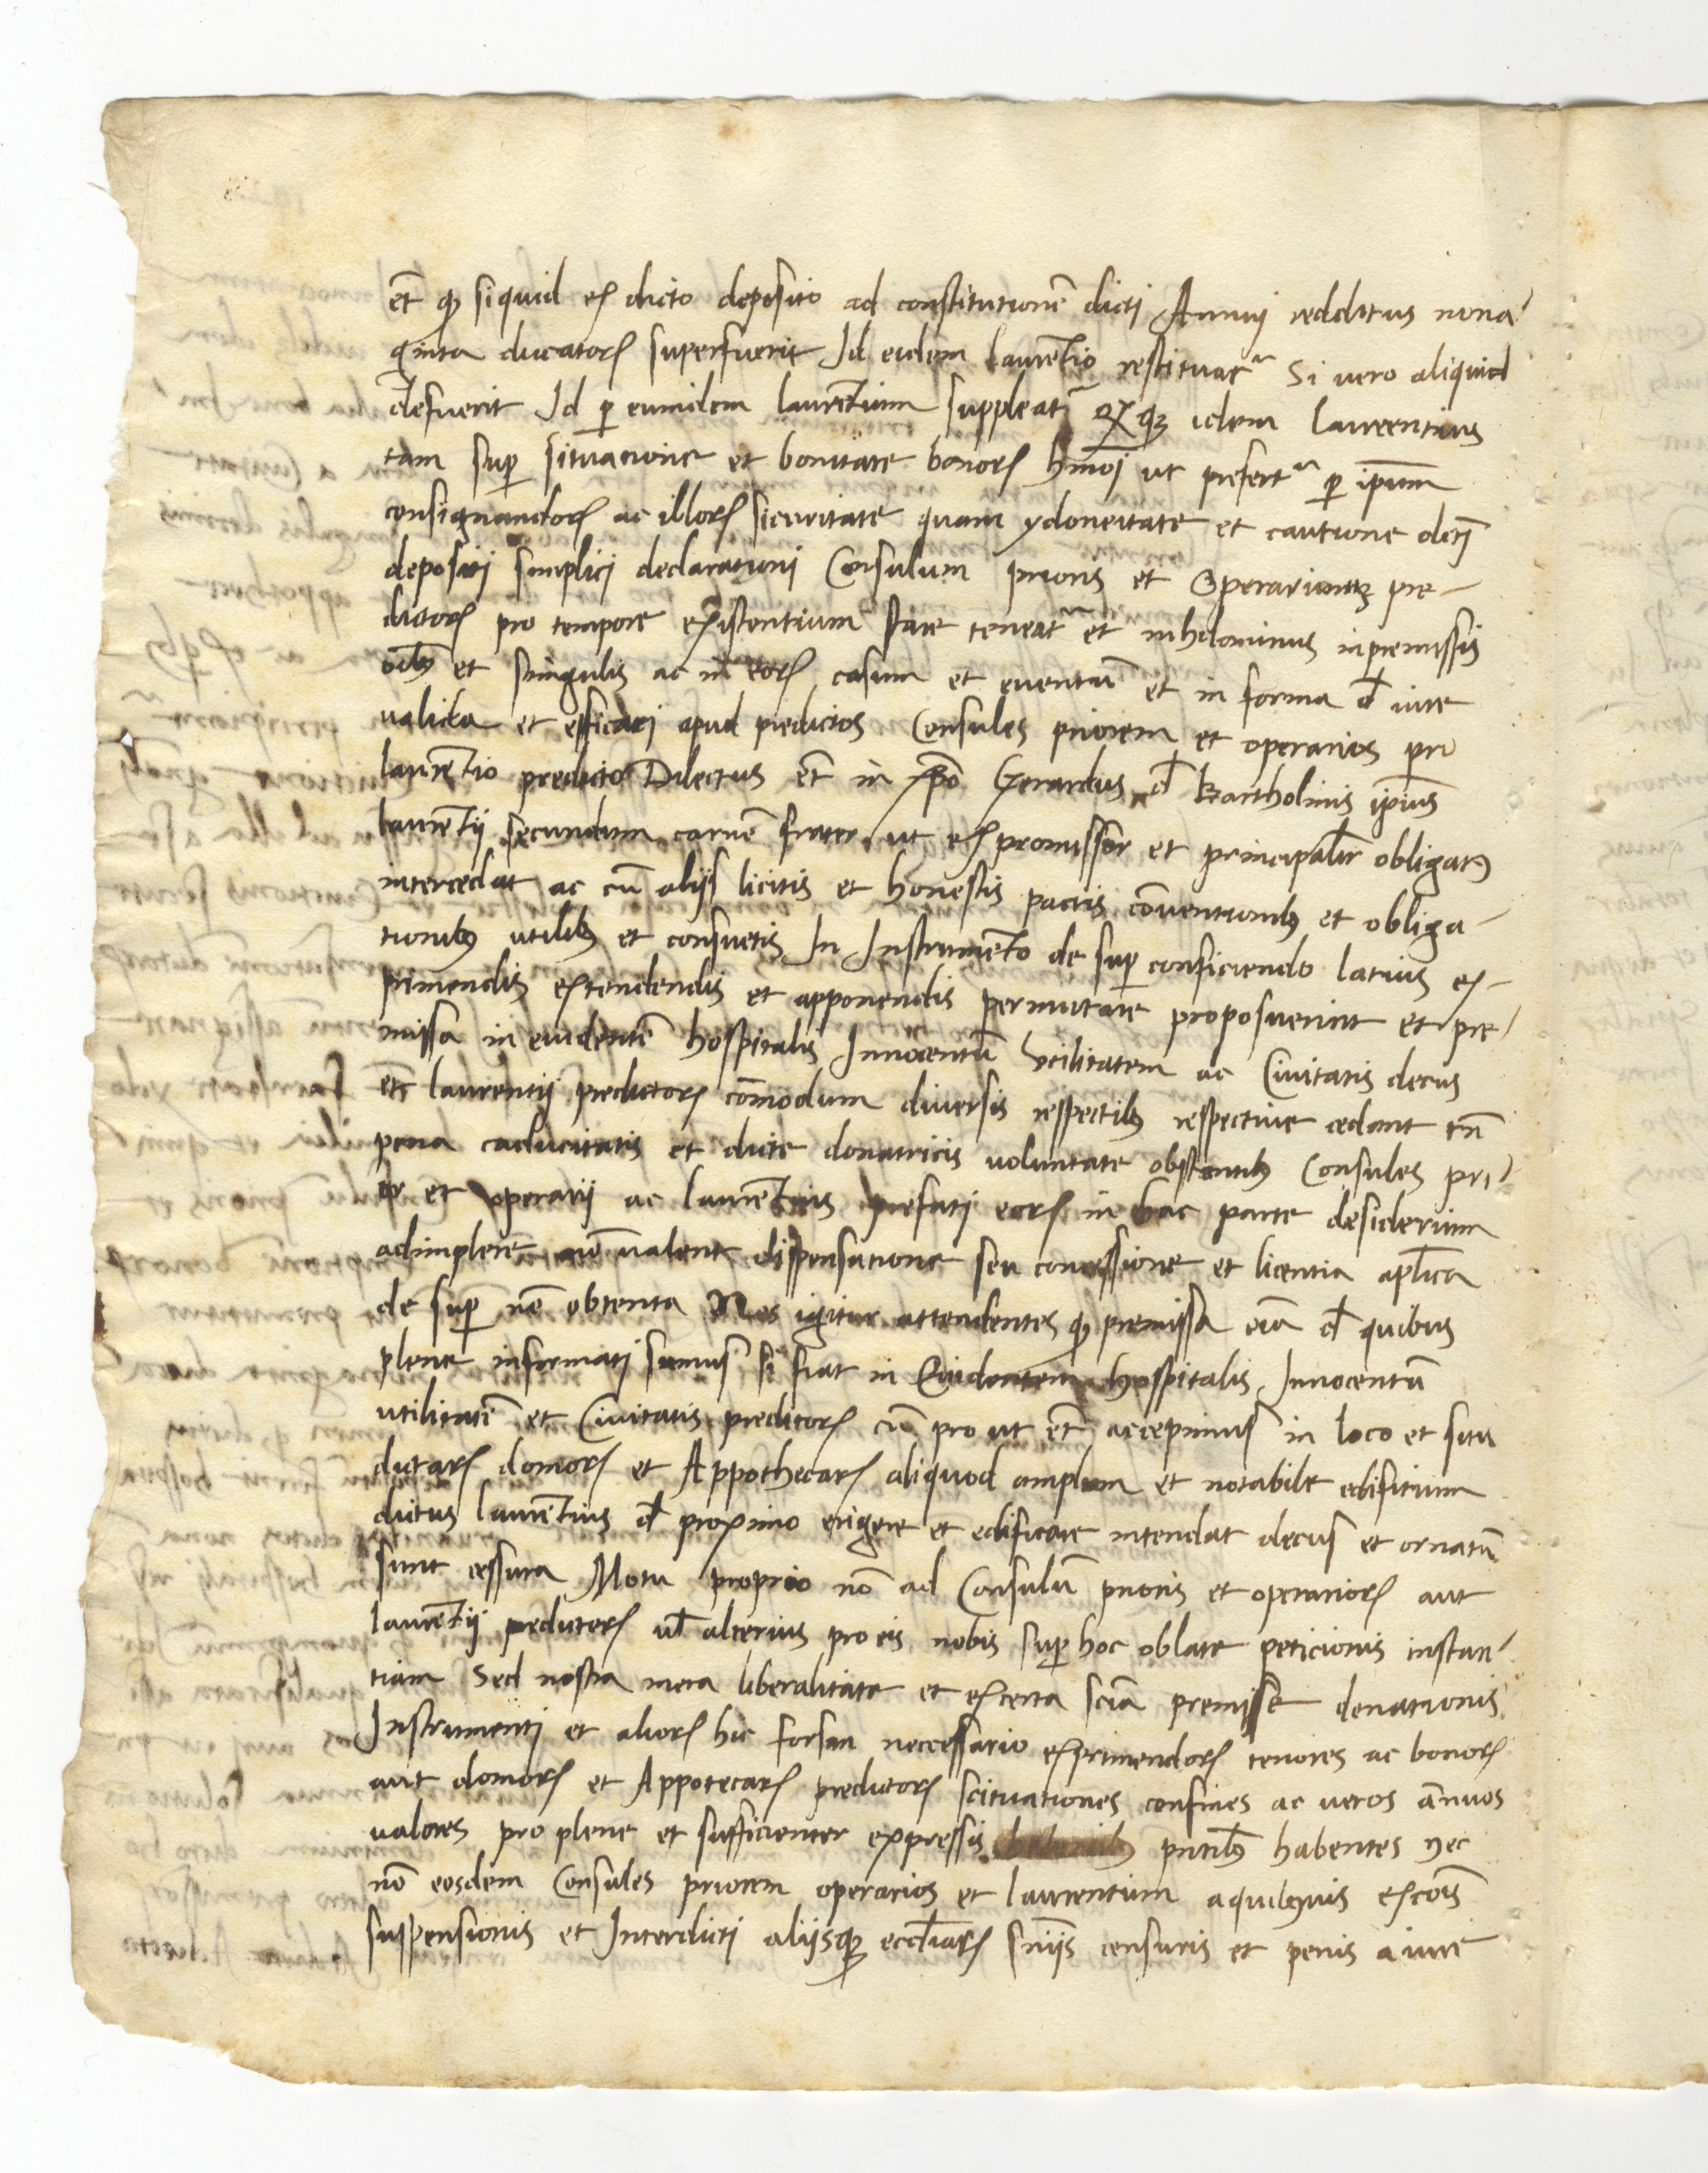 et q̨ siquid ex dicto deposito ad constitutionē dicti Annuj redditus nona-
ginta ducatorꝝ superfuerit Id eidem laurētio restituatr Si uero aliquid
defuerit Id p̱ eumdem laurētium suppleatr Et q̨ idem laurentius
tam sup̱ situatione et bonitate bonorꝝ hm̄oj ut prefertr p̱ ip̄um
consignandorꝝ ac illorꝝ sicuritate quam ydoneitate et cautione dictj
depositj simplicj declarationj Consulum prioris et Operariorum pre-
dictorꝝ pro tempore existentium stare teneatr et nihilominus in premissis
oībꝫ et singulis ac in eorꝝ casum et euentū et in forma d̄ iure
ualida et efficaci apud predictos Consules priorem et operarios pro
laurētio predicto Dilectus et̄ in xp̄o Gerardus d̄ Bartholinis ip̄ius
laurētij secundum carnē frater ut expromissor et principalr̄ obligatꝰ
intercedat ac cū alijs licitis et honestis pactis conuentionibꝫ et obliga-
tionibꝫ utilibꝫ et consuetis In Instrumēto de sup̱ conficiendo latius ex-
primendis extendendis et apponendis permutare proposuerint et pre-
missa in euidentē hospitalis Innocentū Utilitatem ac Ciuitatis decus
et̄ laurentij predictorꝝ cōmodum diuersis respectibꝫ respectiue cedant tn̄
pena caducitatis et dicte donatricis uoluntate obstantibꝫ Consules pri-
or et operarij ac laurētius prefatj eorꝝ in hac parte desiderium
adimplere nō ualent dispensatione seu concessione et licentia aplica
de sup̱ nō obtenta Nos igitur attendentes q̨ premissa eīa d̄ quibus
plene informatj sumus si fiat in Euidentem hospitalis Innocentū
utilitatē et Ciuitatis predictorꝝ cū pro ut et̄ accepimus in loco et situ
dictarꝝ domorꝝ et Appothecarꝝ aliquod amplum et notabile edificium
dictus laurētius d̄ proximo erigere et edificare intendat decus et ornatū
sunt cessura Motu proprio nō ad Consulū prioris et operariorꝝ aut
laurētij predictorꝝ ul̄ alterius pro eis nobis sup̱ hoc oblate peticionis instan-
tiam Sed nostra mera liberalitate et ex certa sciā premisse donationis
Instrumentj et aliorꝝ hic forsan neccessario exprimendorꝝ tenores ac bonorꝝ
aut domorꝝ et Appotecarꝝ predictorꝝ scituationes confines ac ueros annuos
ualores pro plene et sufficienter expressis pn̄tibꝫ habentes nec
nō eosdem Consules priorem operarios et laurentium a quibusuis excōis
suspensionis et Interdictj alijsqꝫ eccl̄iarꝝ sn̄ijs censuris et penis a iure